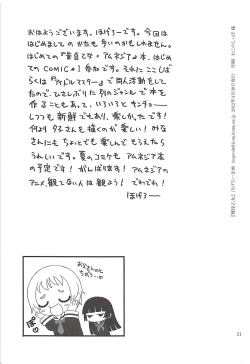 おはようございます。ほげろーです。今回は
はじめましての かたも 多いのかもしれません。
はじめての『黄昏乙女×アムネジア』本、はじめ
ての COMIC☆1 参加です。それに ここしば
らくは『アイドルマスター』で同人活動をして
たので、ひさしぶりに 別のジャンルで 本を
作ることもあって、いろいろと キンチョー
しつつも 新鮮でもあり、楽しかったです!
何より 夕子さんを 描くのが 楽しい! みな
さんにも ちょっとでも 楽しんで もらえたら
うれしいです。夏のコミケも アムネジア本
の予定です! がんばります! アムネジアの
アニメ、観てない人は 観よう! でわでわ!
ほげろー
21